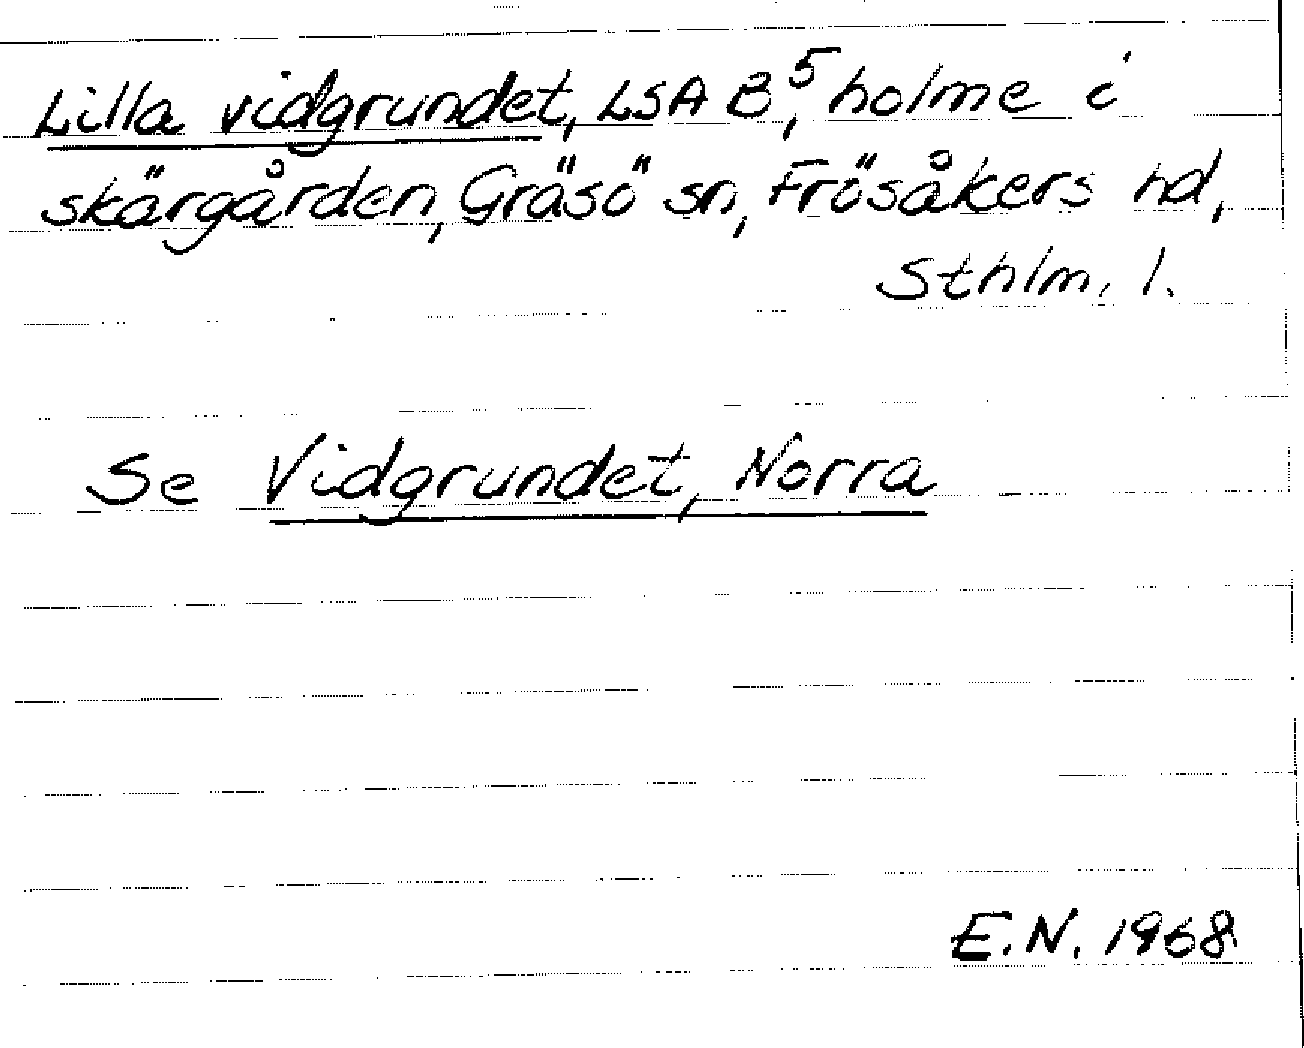 Lilla vidgrundet, LSA B⁵, holme i
skärgården, Gräsö sn, Frösåkers hd,
Sthlm. l.
Se Vidgrundet, Norra
E.N. 1968